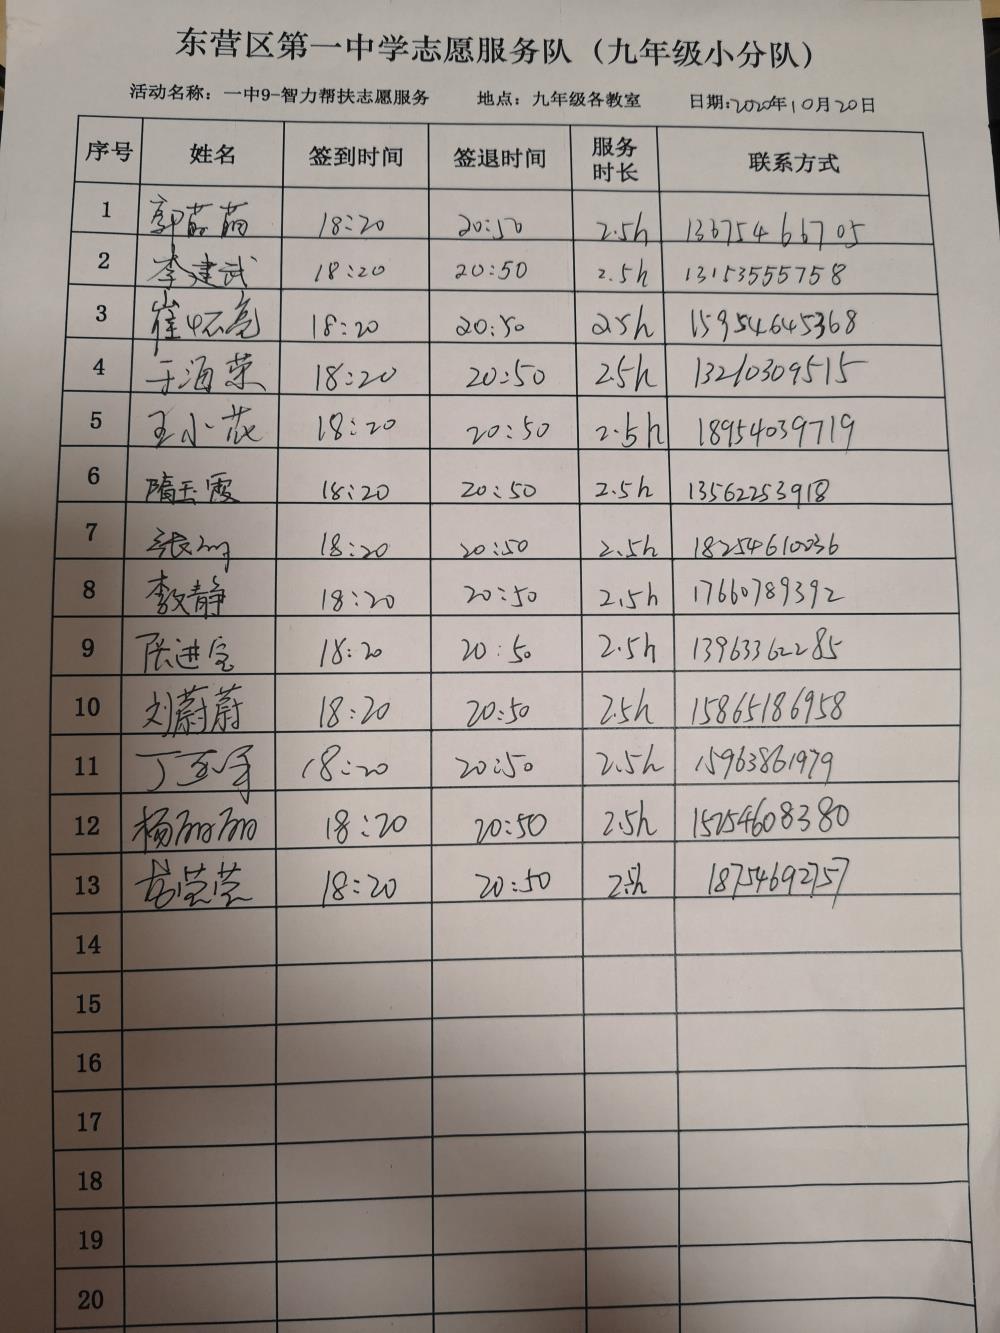 东营区第一中学志愿服务队（九年级小分队）
活动名称：一中9-智力帮扶志愿服务 地点：九年级各教室 日期：2020年10月20日
序号 姓名 签到时间 签退时间 服务时长 联系方式
1 郭茜茜 18:20 20:50 2.5h 13675466705
2 李建武 18:20 20:50 2.5h 13153555758
3 崔怀亮 18:20 20:50 2.5h 15954645368
4 于海荣 18:20 20:50 2.5h 13210309515
5 王小花 18:20 20:50 2.5h 18954039719
6 隋玉霞 18:20 20:50 2.5h 13562253918
7 张 18:20 20:50 2.5h 18254610036
8 李文静 18:20 20:50 2.5h 17660789392
9 张进宝 18:20 20:50 2.5h 13963362285
10 刘蔚蔚 18:20 20:50 2.5h 15865186958
11 丁 18:20 20:50 2.5h 15963861979
12 杨丽丽 18:20 20:50 2.5h 15254608380
13 莹莹 18:20 20:50 2.5h 18754692757
14
15
16
17
18
19
20